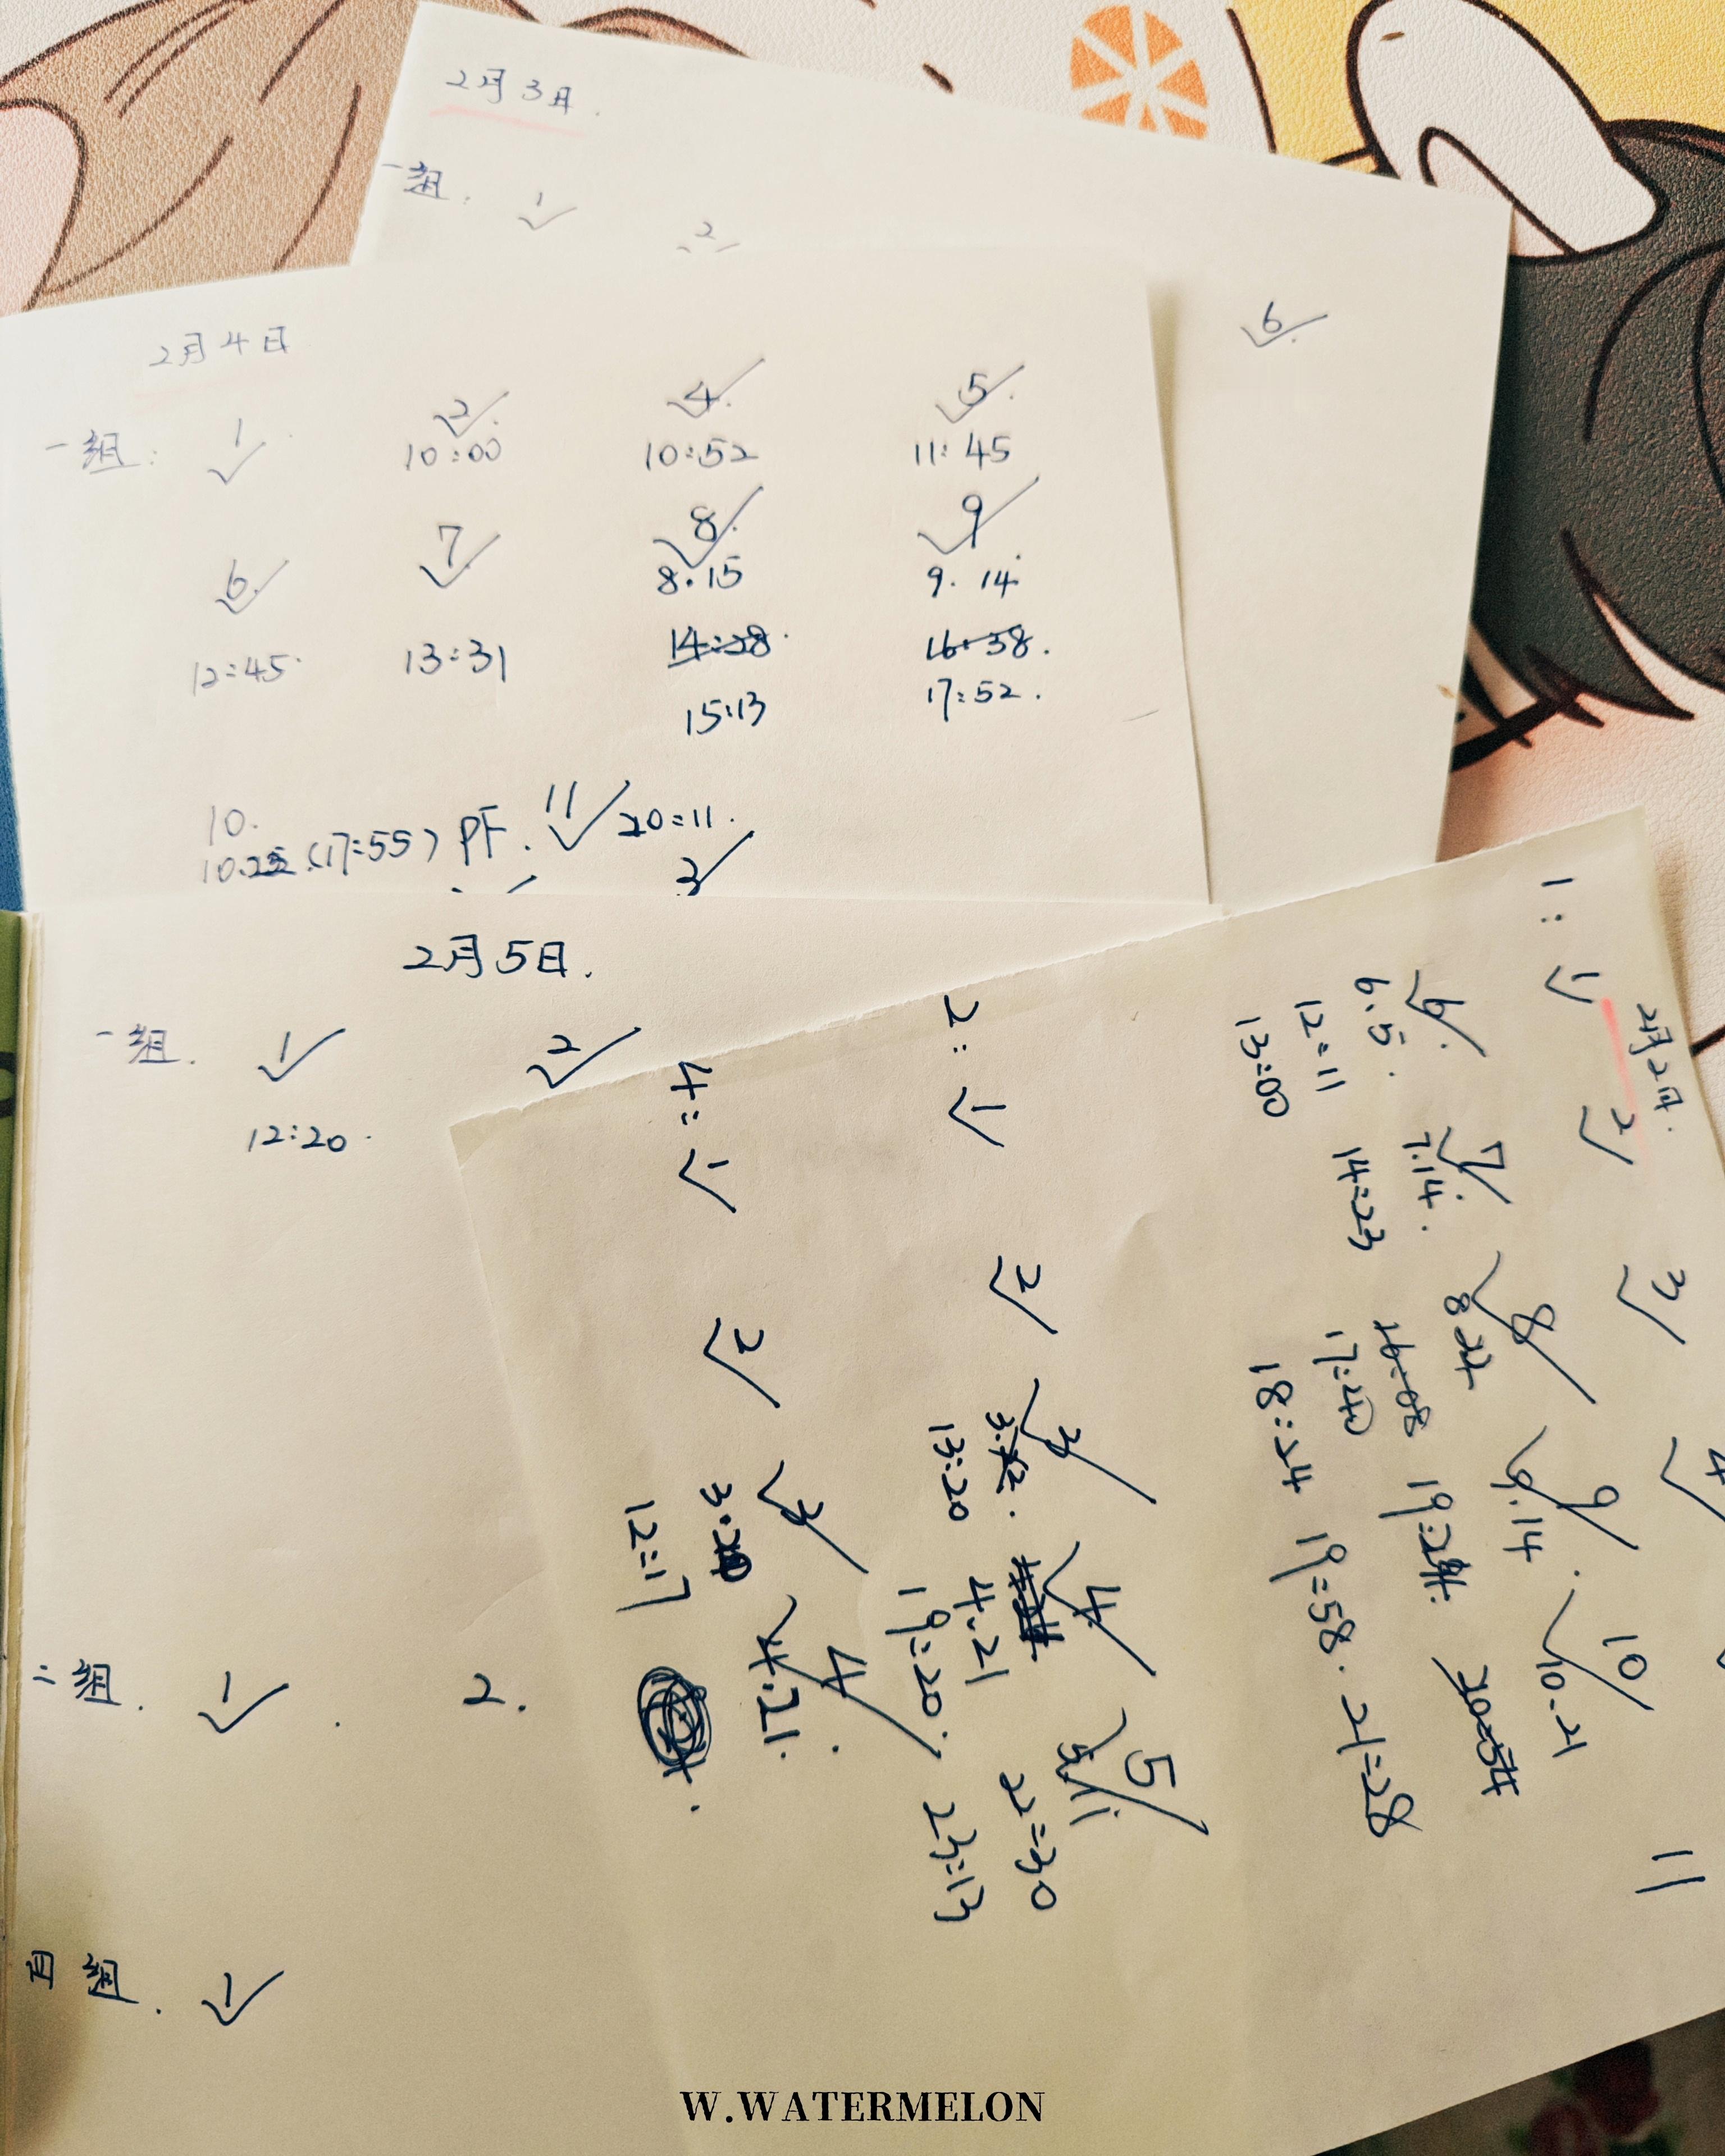 2月3日.
一组. 1 2
6
2月4日
一组: 1 2. 4. 5.
10:00 10:52 11:45
6. 7 8. 9
8.15 9.14
12:45 13:31 14:28. 16:38.
15:13 17:52.
10. 11 20:11.
(17:55) PF.
3
2月5日.
一组. 1 2
12:20.
二组. 1. 2.
四组. 1
2月2日.
1: 1 2 3 4
6. 7 8 9 10 11
6.5. 7.14. 9.14. 10.21
12:11 14:23 17:40
13:00 18:24 19:58. 21:28
2: 1 2 3 4 5
13:20 4.21
19:20. 22:30
23:13
4: 1 2 3 4
12:17 4.21.
W.WATERMELON